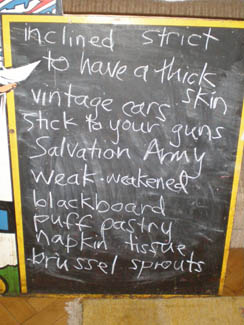 inclined strict
to have a thick
skin
vintage cars
stick to your guns
Salvation Army
weak - weakened
blackboard
puff pastry
napkin tissue
brussel sprouts